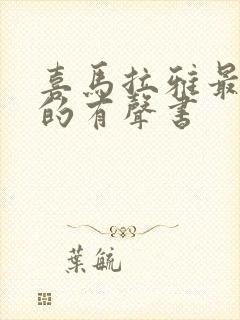 喜馬拉雅最
的有聲書
葉毓